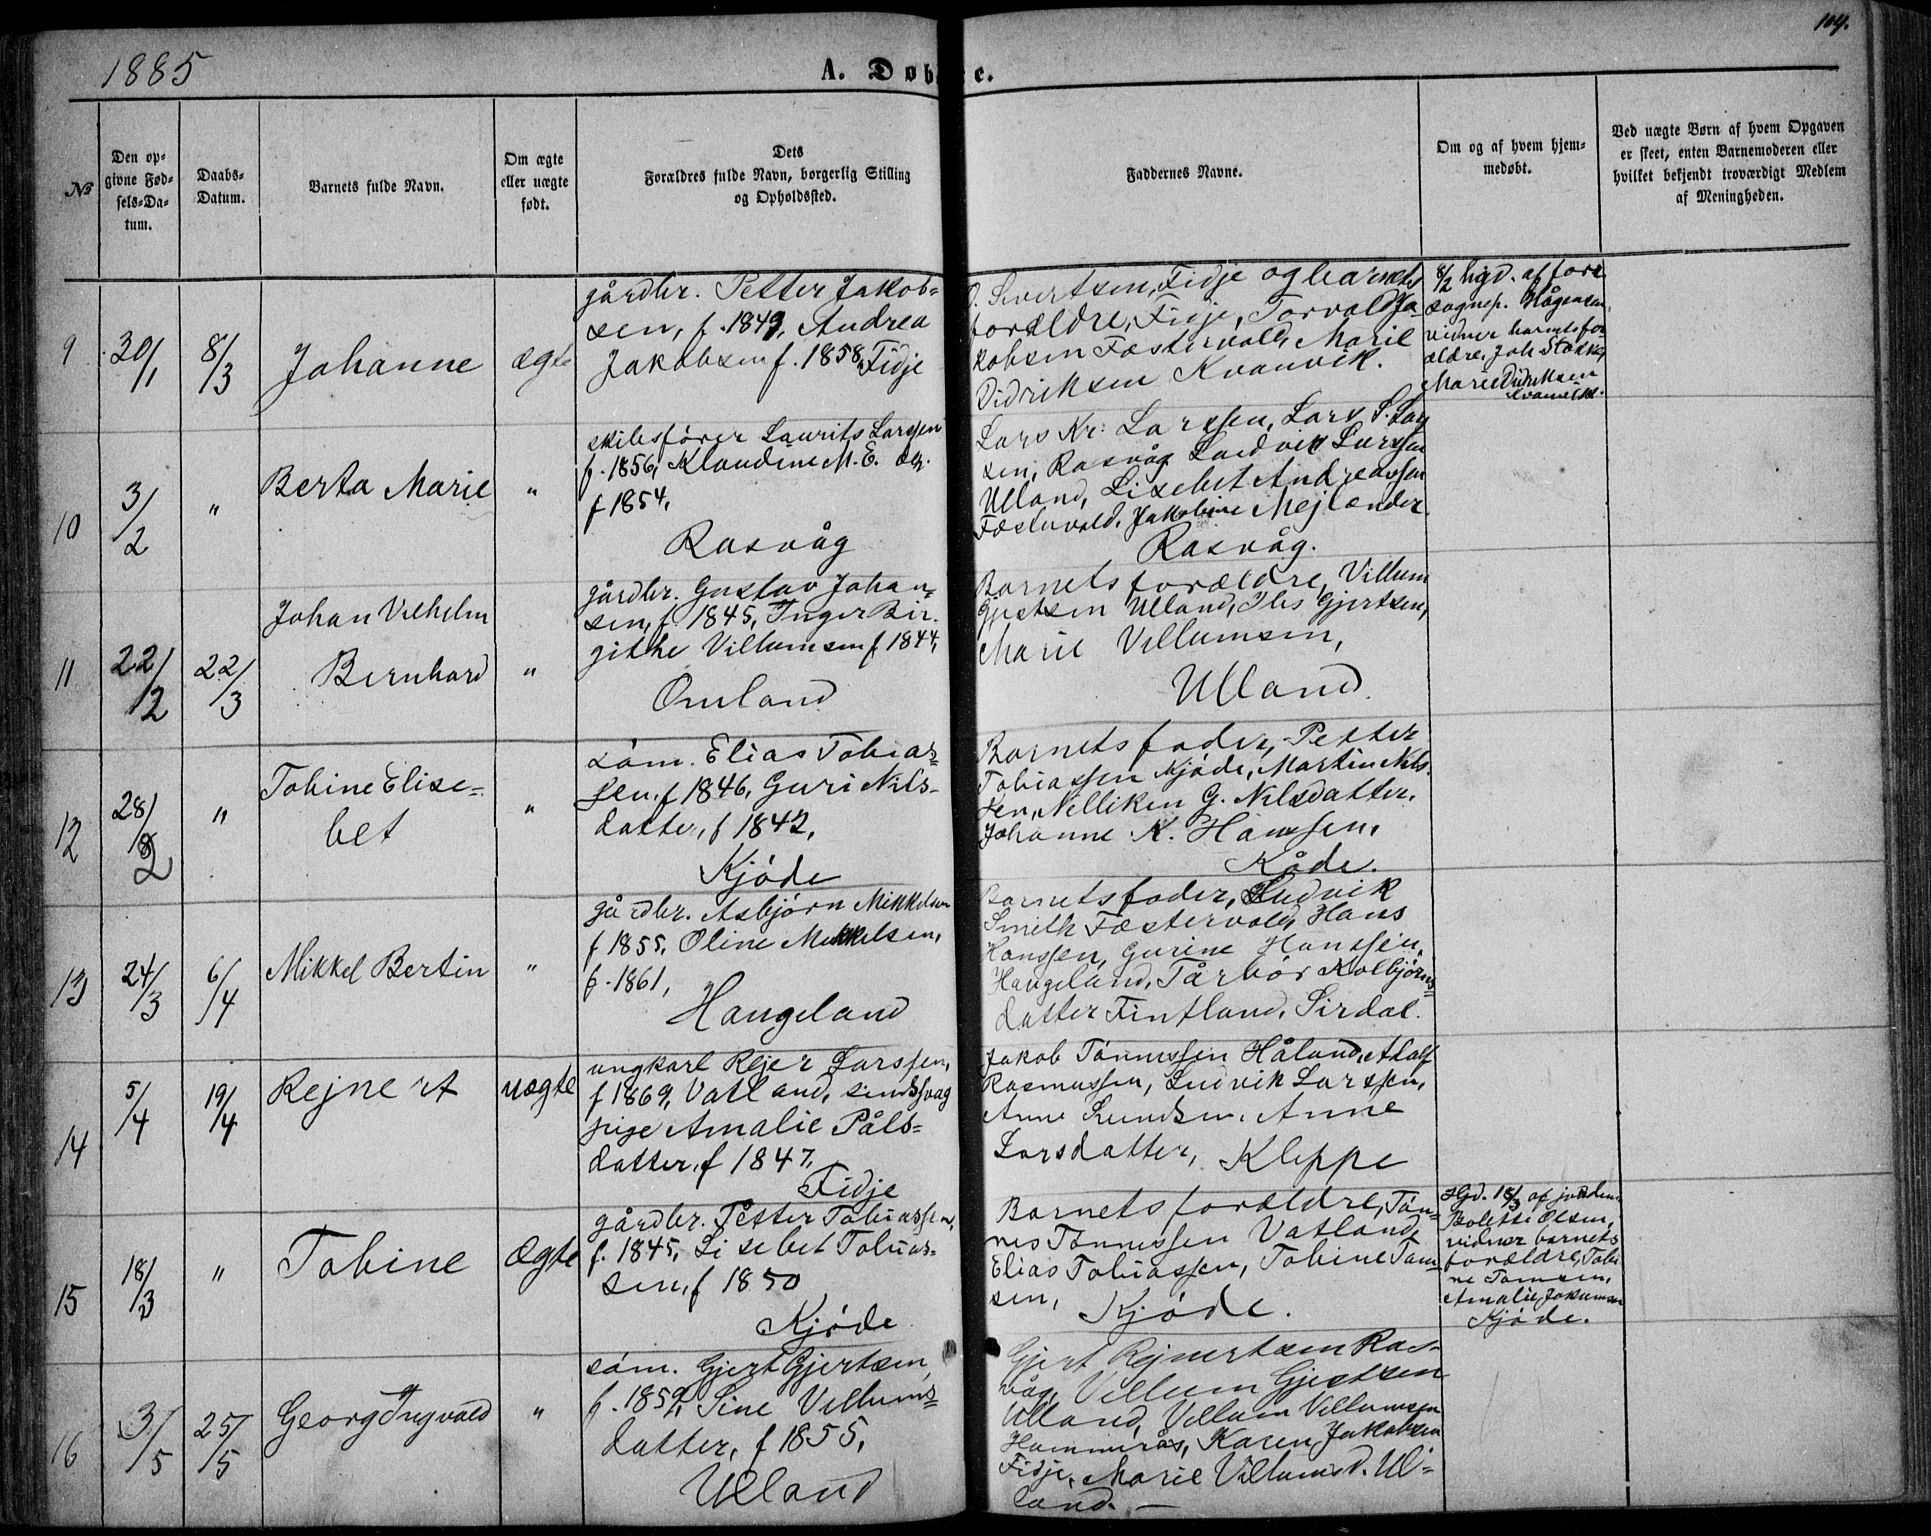 1885
104.
A. Døb e.
№
Den op-
givne Fød-
sels-Da-
tum.
Daabs-
Datum.
Barnets fulde Navn.
Om ægte
eller uægte
født.
Dets
Forældres fulde Navn, borgerlig Stilling
og Opholdssted.
Faddernes Navne.
Om og af hvem hjem-
medøbt.
Ved uægte Børn af hvem Opgaven
er skeet, enten Barnemoderen eller
hvilket bekjendt troværdigt Medlem
af Meningheden.
9
30/1
8/3
Johanne
ægte
gårdbr. Petter Jakob-
sen, f. 1849, Andrea
Jakobsen f. 1858, Fidje
O. Sivertsen, Fidje og barnets
forældre, Fidje, Torvald Ja
kobsen Fæstervold, Marie
Didriksen Kvanvik.
8/2 hgd. af fore
sognep. Hågensen
vidner barnets for
ældre, Joh Stokke,
Marie Didriksen
Kvanvik.
10
3/2
"
Berta Marie
"
skibsfører Laurits Larssen
f. 1856, Klaudine M. E.
f 1854,
Rasvåg
Lars Kr. Larssen, Lars S. Lars
sen, Rasvåg Ludvik Larssen
Ulland, Lisebet Andreassen
Fæstervold, Jakobine Mejlænder
Rasvåg.
11
22/2
22/3
Johan Vilhelm
Bernhard
"
gårdbr. Gustav Johan-
sen, f. 1845, Inger Bir-
githe Villumsen f. 1844,
Omland
Barnets forældre, Villum
Gjertsen Ulland, Gjertsen,
Marie Villumsen,
Ulland.
12
28/2
"
Tobine Elise-
bet
"
søm. Elias Tobias-
sen, f 1846, Guri Nils-
datter, f 1842,
Kjøde
Barnets fader, Petter
Tobiassen Kjøde, Martin Nils-
sen, Nelliken G. Nilsdatter,
Johanne K. Hanssen,
Kåde.
13
24/3
6/4
Mikkel Bertin
"
gårdbr. Asbjørn Mikkelsen
f 1855, Oline Mikkelsen,
f. 1861,
Haugeland
Barnets fader, Ludvik
Smith Fæstervold, Hans
Hanssen, Gurine Hanssen,
Haugeland, Tårbør Kolbjørns-
datter Fintland, Sirdal.
14
5/4
19/4
Rejnert
uægte
ungkarl Rejer Larssen,
f 1869, Vatland, sindssvag
pige Amalie Påls-
datter, f 1847,
Fidje
Jakob Tønnessen Håland, Adolf
Rasmussen, Ludvik Larssen,
Anne Anne
Larsdatter, Kleppe
15
18/3
"
Tobine
Ægte
gårdbr. Petter Tobiassen,
f. 1845, Lisebet Tobias-
sen, f 1850
Kjøde
Barnets forældre, Tøn-
nes Tønnessen Vatland,
Elias Tobiassen, Tobine Tom-
sen, Kjøde.
Hgd. 18/3 af jordem.
Bolette Olsen,
vidner barnets
forældre, Tobi
ne Tomsen,
Amalie
Kjøde.
16
3/5
25/5
Georg Ingvald
"
søm. Gjert Gjertsen,
f. 1859, Sine Villums-
datter, f 1855,
Ulland
Gjert Rejnertsen Ras-
våg, Villum Gjertsen
Ulland, Villum Villumsen
Hammerås, Karen Jakobsen
Fidje, Marie Villumsd. Ul-
land. —